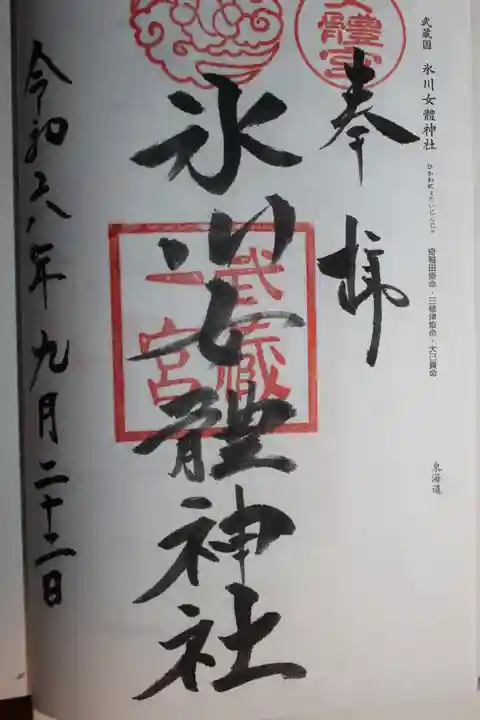 武蔵国 氷川女體神社 ひかわにょたいじんじゃ 奇稲田姫命・三穂津姫命・大己貴命 東海道
奉拝
女體宮
氷川女體神社
武蔵
一宮
令和六年九月二十二日